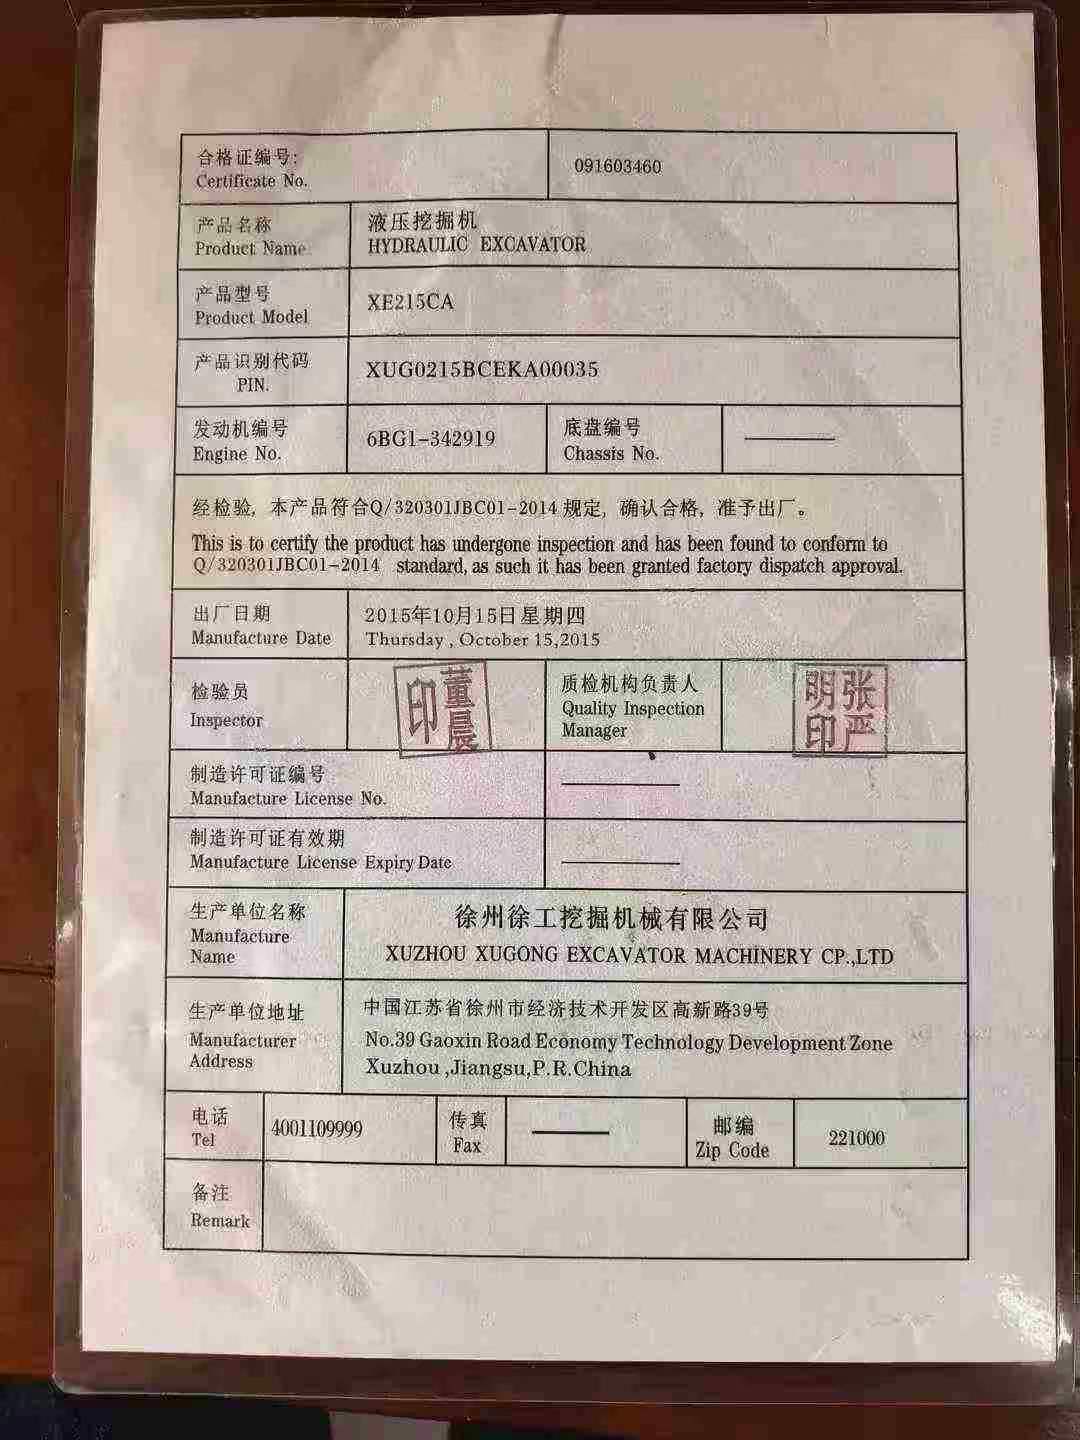 合格证编号:
Certificate No.
091603460
产品名称
Product Name
液压挖掘机
HYDRAULIC EXCAVATOR
产品型号
Product Model
XE215CA
产品识别代码
PIN.
XUG0215BCEKA00035
发动机编号
Engine No.
6BG1-342919
底盘编号
Chassis No.
经检验, 本产品符合Q/320301JBC01-2014 规定, 确认合格, 准予出厂。
This is to certify the product has undergone inspection and has been found to conform to
Q/320301JBC01-2014 standard, as such it has been granted factory dispatch approval.
出厂日期
Manufacture Date
2015年10月15日星期四
Thursday , October 15,2015
检验员
Inspector
董晨印
质检机构负责人
Quality Inspection
Manager
张严明印
制造许可证编号
Manufacture License No.
制造许可证有效期
Manufacture License Expiry Date
生产单位名称
Manufacture
Name
徐州徐工挖掘机械有限公司
XUZHOU XUGONG EXCAVATOR MACHINERY CP.,LTD
生产单位地址
Manufacturer
Address
中国江苏省徐州市经济技术开发区高新路39号
No.39 Gaoxin Road Economy Technology Development Zone
Xuzhou ,Jiangsu,P.R.China
电话
Tel
4001109999
传真
Fax
邮编
Zip Code
221000
备注
Remark